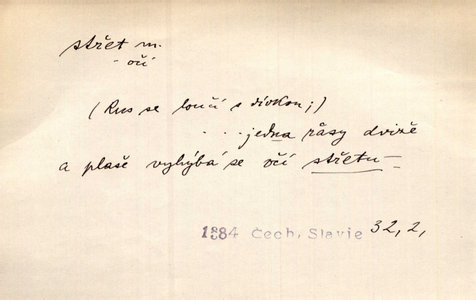 střet m.
- očí
(Rus se loučí s dívkou;)
. . . jedna řasy dviže
a plaše vyhýbá se očí střetu –
1884 Čech, Slavie 32, 2,